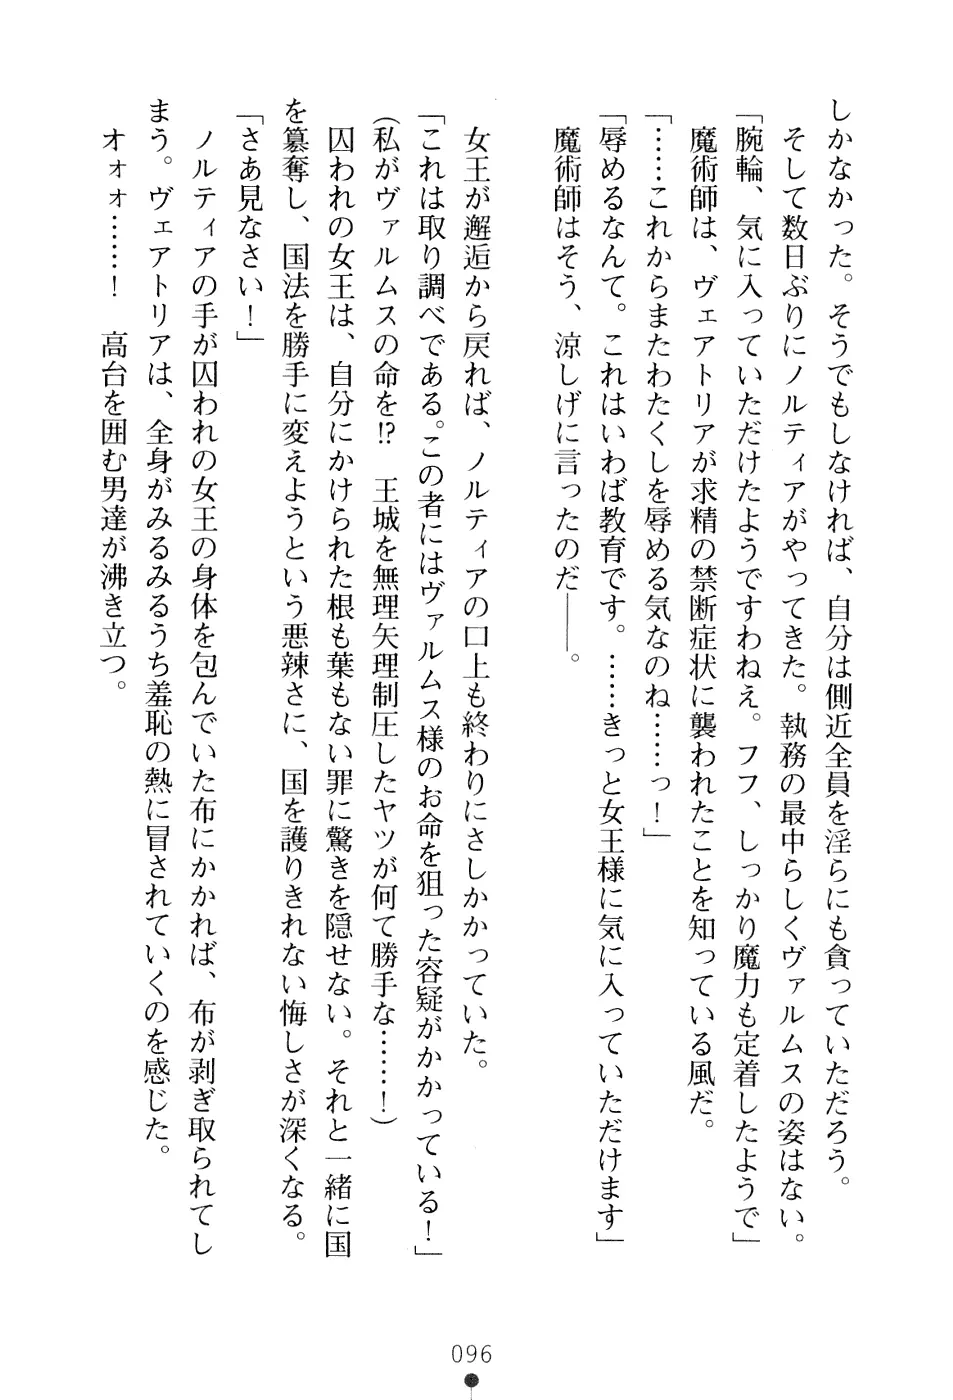 しかなかった。そうでもしなければ、自分は側近全員を淫らにも貪っていただろう。
そして数日ぶりにノルティアがやってきた。執務の最中らしくヴァルムスの姿はない。
「腕輪、気に入っていただけたようですわねえ。フフ、しっかり魔力も定着したようで」
魔術師は、ヴェアトリアが求精の禁断症状に襲われたことを知っている風だ。
「……これからまたわたくしを辱める気なのね……っ！」
「辱めるなんて。これはいわば教育です。……きっと女王様に気に入っていただけます」
魔術師はそう、涼しげに言ったのだ――。
女王が邂逅から戻れば、ノルティアの口上も終わりにさしかかっていた。
「これは取り調べである。この者にはヴァルムス様のお命を狙った容疑がかかっている！」
（私がヴァルムスの命を!?　王城を無理矢理制圧したヤツが何て勝手な……！）
囚われの女王は、自分にかけられた根も葉もない罪に驚きを隠せない。それと一緒に国
を簒奪し、国法を勝手に変えようという悪辣さに、国を護りきれない悔しさが深くなる。
「さあ見なさい！」
ノルティアの手が囚われの女王の身体を包んでいた布にかかれば、布が剥ぎ取られてし
まう。ヴェアトリアは、全身がみるみるうち羞恥の熱に冒されていくのを感じた。
オォォ……！　高台を囲む男達が沸き立つ。
096